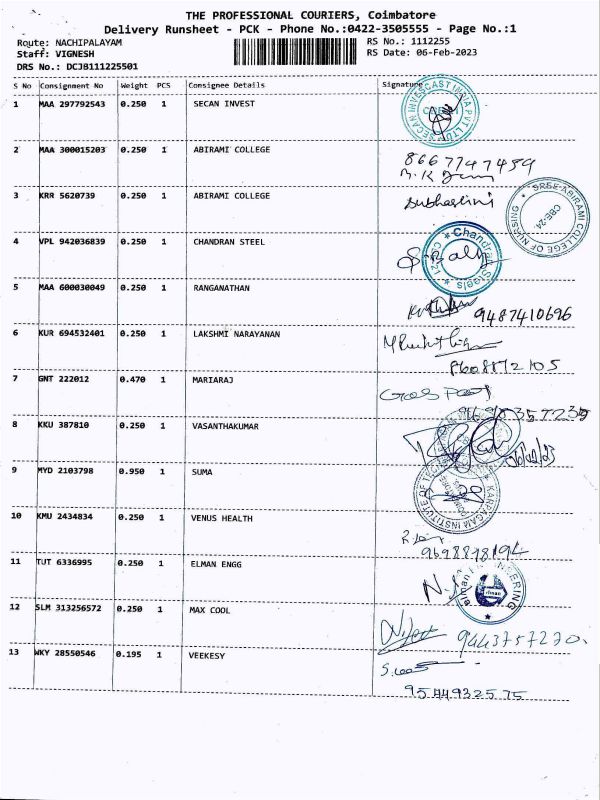 THE PROFESSIONAL COURIERS, Coimbatore
Delivery Runsheet - PCK - Phone No.:0422-3505555 - Page No.:1
Route: NACHIPALAYAM RS No.: 1112255
Staff: VIGNESH RS Date: 06-Feb-2023
DRS No.: DCJB111225501
S No Consignment No Weight PCS Consignee Details Signature
1 MAA 297792543 0.250 1 SECAN INVEST
SECAN INVESCAST INDIA PVT LTD
2 MAA 300015203 0.250 1 ABIRAMI COLLEGE
8667747459
3 KRR 5620739 0.250 1 ABIRAMI COLLEGE Subhashini
SREE ABIRAMI COLLEGE OF NURSING CBE-24.
4 VPL 942036839 0.250 1 CHANDRAN STEEL
Chandran Steels
5 MAA 600030049 0.250 1 RANGANATHAN
9487410696
6 KUR 694532401 0.250 1 LAKSHMI NARAYANAN
8608872105
7 GNT 222012 0.470 1 MARIARAJ
8 KKU 387810 0.250 1 VASANTHAKUMAR
9 MYD 2103798 0.950 1 SUMA
KARPAGAM INSTITUTE OF
10 KMU 2434834 0.250 1 VENUS HEALTH
9698818194
11 TUT 6336995 0.250 1 ELMAN ENGG
12 SLM 313256572 0.250 1 MAX COOL
9443757220.
13 WKY 28550546 0.195 1 VEEKESY
9544932575